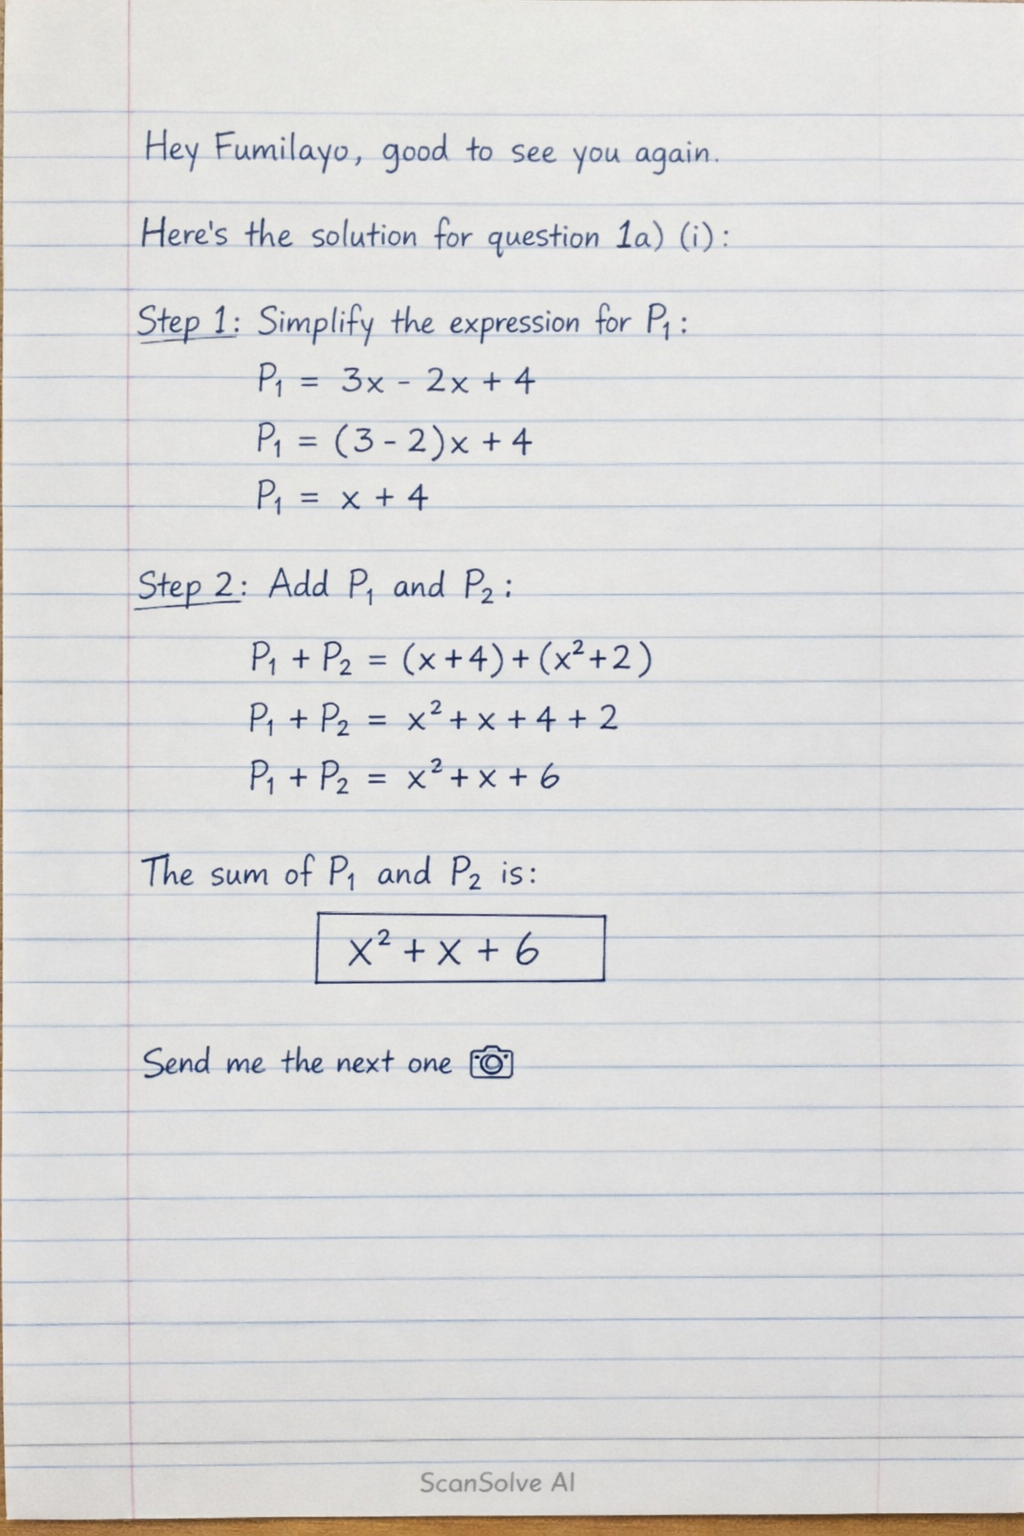 Hey Fumilayo, good to see you again.
Here's the solution for question 1a) (i):
Step 1: Simplify the expression for P₁:
P₁ = 3x - 2x + 4
P₁ = (3 - 2)x + 4
P₁ = x + 4
Step 2: Add P₁ and P₂:
P₁ + P₂ = (x+4) + (x²+2)
P₁ + P₂ = x² + x + 4 + 2
P₁ + P₂ = x² + x + 6
The sum of P₁ and P₂ is:
x² + x + 6
Send me the next one
ScanSolve AI